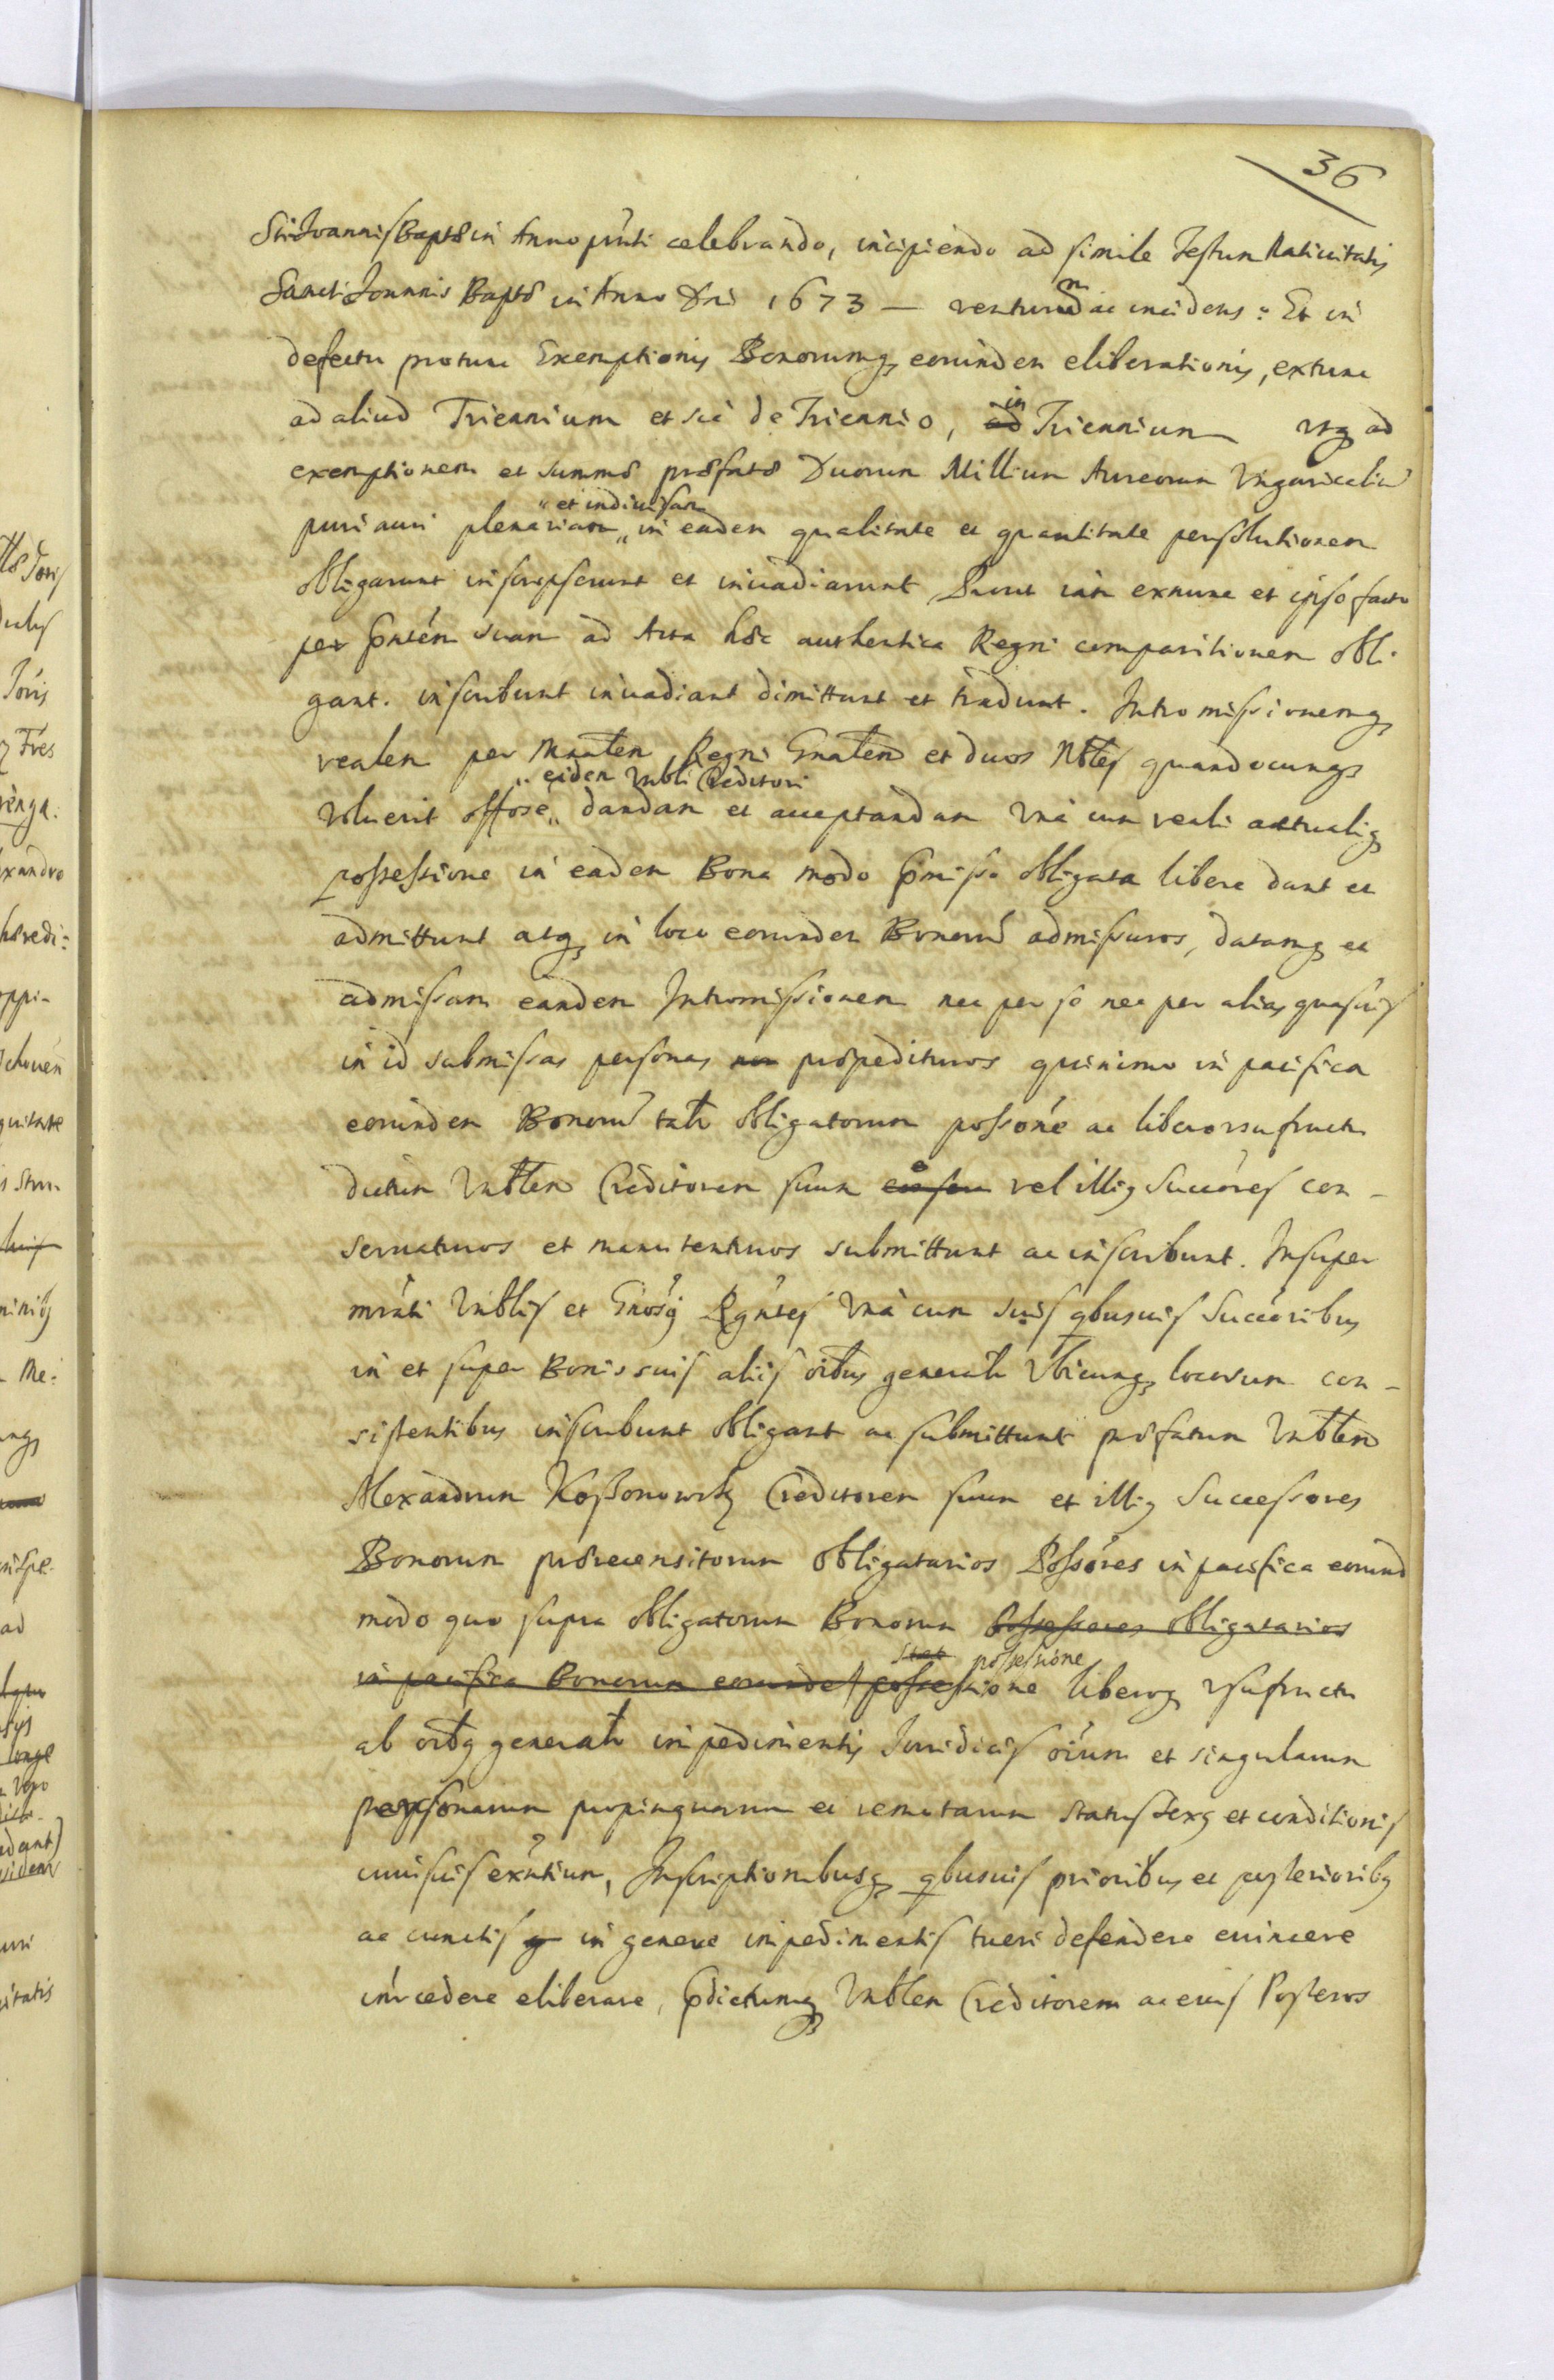 36
Sti Joannis Baptæ in Anno pnti celebrando, incipiendo ad simile Festum Natiuitatis
Sancti Joannis Baptæ in Anno Dni 1673 — venturum ac incidens: Et in
defectu protunc Exemptionis Bonorumq eorundem eliberationis, extunc
ad aliud Triennium et sic de Triennio, ad in Triennium vsq ad
exemptionem et summæ præfatæ Duorum Millium Aureorum Vngaricaliū
puri auri plenariam „ et indiuisam in eadem qualitate et quantitate persolutionem
obligarunt inscripserunt et inuadiarunt Prout iam exnunc et ipso facto
per pntem suam ad Acta hæc authentica Regni comparitionem obli-
gant. inscribunt inuadiant dimittunt et tradunt. Intromissionemq
realem per Mnrlem Regni Gnalem et duos Nbles quandocunq
voluerit offose „ eidem Vrbli Creditori dandam et acceptandam Vnà cum reali actualiq
possessione in eadem Bona modo pmisso obligata libere dant et
admittunt atq in loco eorundem Bonorū admissuros, datamq et
admissam eandem Intromissionem nec per se nec per alias quasuis
in id submissas personas non præpedituros quinimo in pacifica
eorundem Bonorū talr obligatorum possone ac libero vsufructu
dictum Vrblem Creditorem suum vel illiq Succores con-
seruaturos et manutenturos submittunt ac inscribunt. Insuper
mrati Vrbles et Gnosq Rgntes Vnà cum suis qbusuis Succoribus
in et super Bonis suis aliis oibus generalr Vbicunq locorum con-
sistentibus inscribunt obligant ac submittunt præfatum Vrblem
Alexandrum Koßonowsky Creditorem suum et illiq Successores
Bonorum præcensitorum obligatarios Possores in pacifica eorund
modo quo supra obligatorum Bonorum Possessores obligatarios
in pacifica Bonorum eorundem possessione possessione liberoq vsufructu
ab oibq generalr impedimentis Juridicis oium et singularum
personarum propinquarum et remotarum status sexq et conditionis
cuiusuis exntium, Inscriptionibusq qbusuis prioribus et posterioribq
ac cunctis in genere impedimentis tueri defendere euincere
intrcedere eliberare, pdictumq Vrblem Creditorem ac eius Posteros